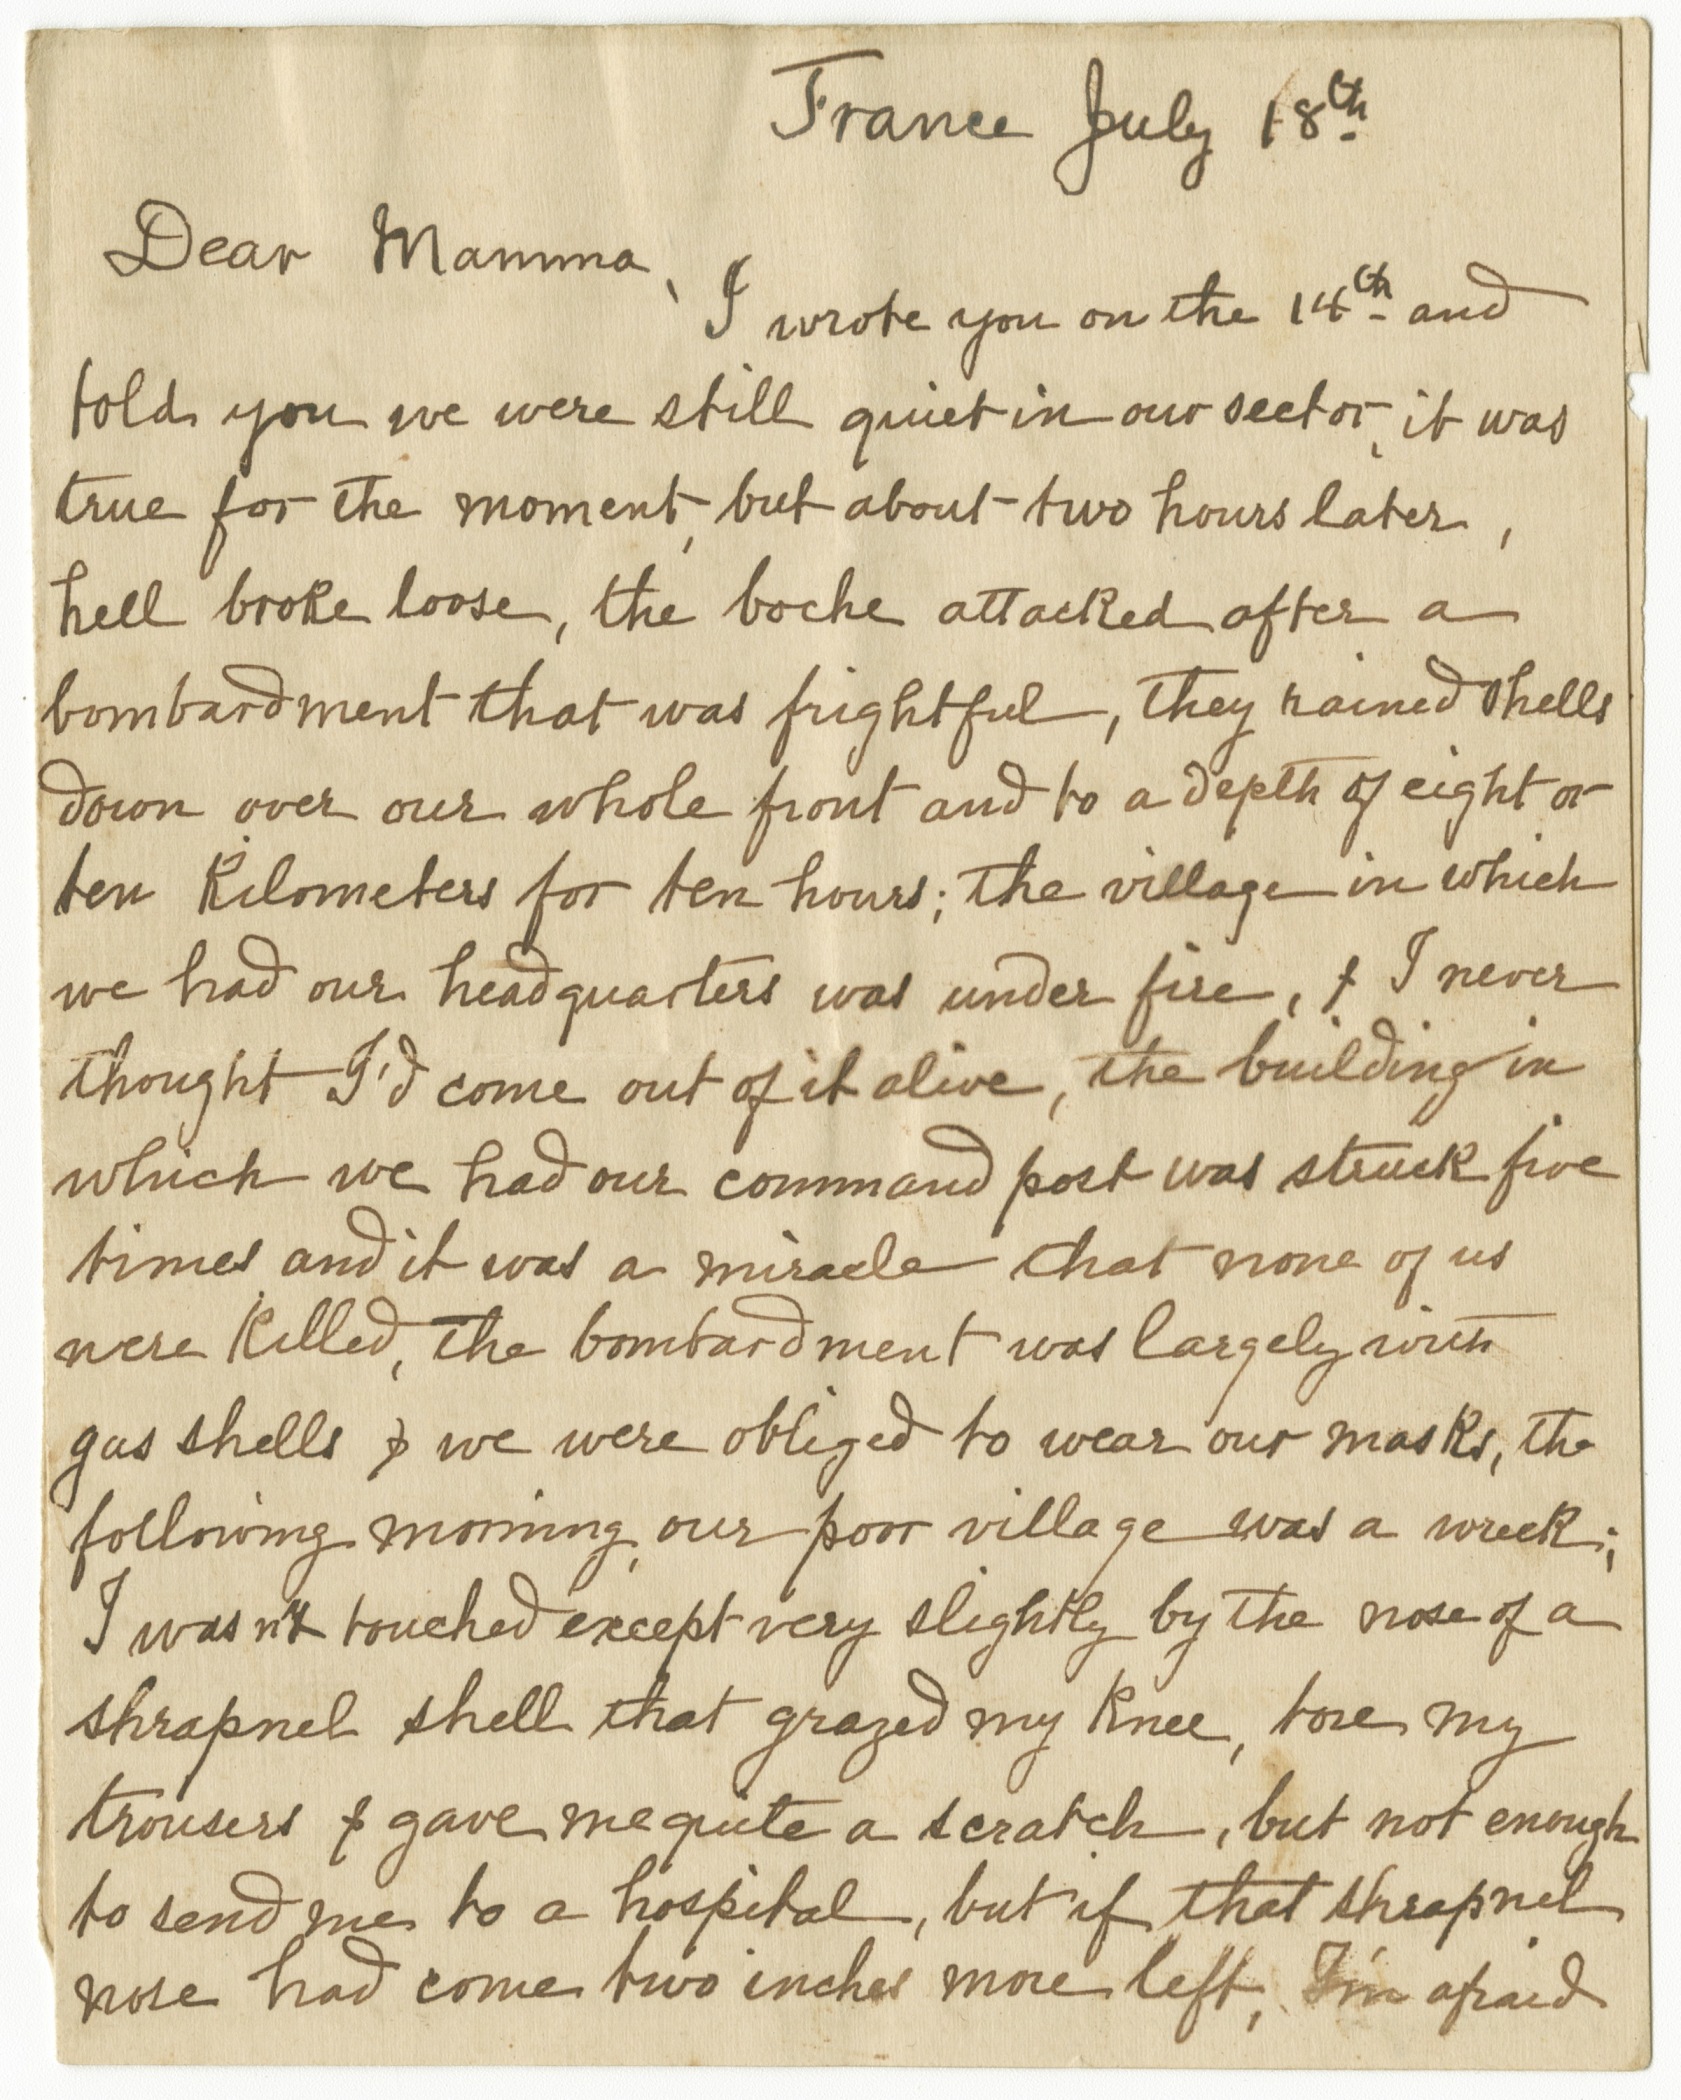 France July 18th
Dear Mamma,
I wrote you on the 14th and
told you we were still quiet in our sector, it was
true for the moment, but about two hours later,
hell broke loose, the boche attacked after a
bombardment that was frightful, they rained shells
down over our whole front and to a depth of eight or
ten Kilometers for ten hours; the village in which
we had our headquarters was under fire, & I never
thought I'd come out of it alive, the building in
which we had our command post was struck five
times and it was a miracle that none of us
were Killed, the bombardment was largely with
gas shells & we were obliged to wear our masks, the
following morning, our poor village was a wreck;
I wasn't touched except very slightly by the nose of a
shrapnel shell that grazed my Knee, tore my
trousers & gave me quite a scratch, but not enough
to send me to a hospital, but if that shrapnel
nose had come two inches more left, I'm afraid